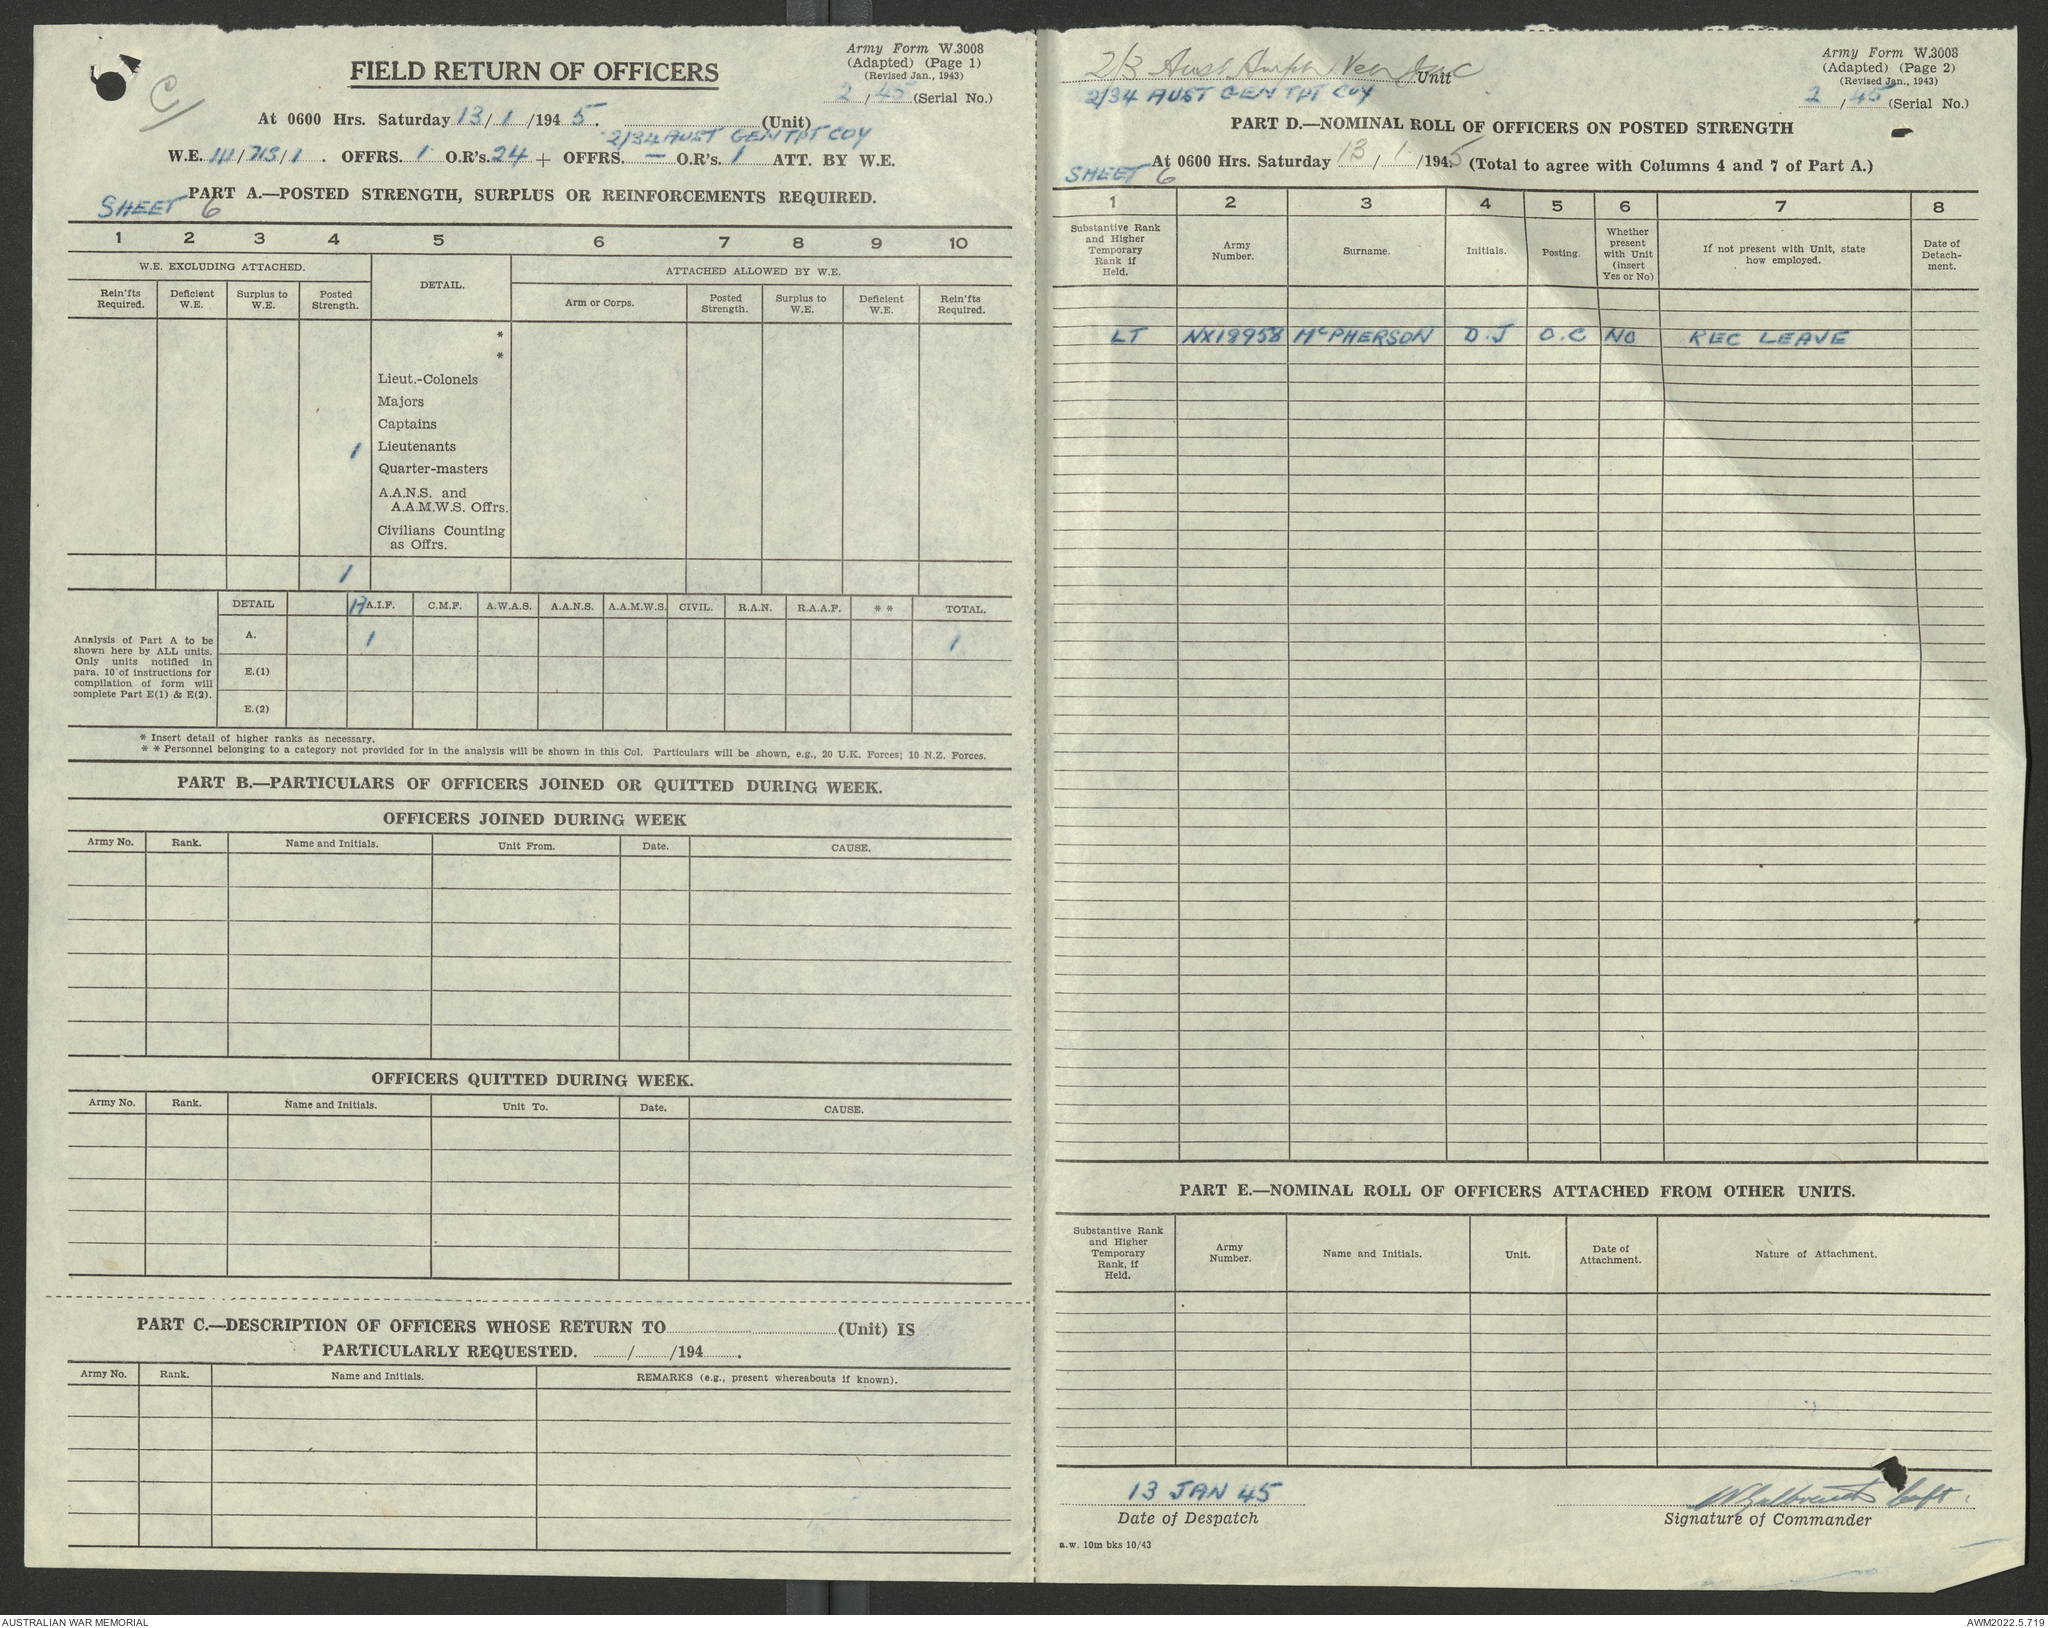 FIELD RETURN OF OFFICERS
Army Form W.3008
(Adapted) (Page 1)
(Revised Jan., 1943)
2/45 (Serial No.)
At 0600 Hrs. Saturday 13/1/1945. (Unit)
2/34 AUST GEN TPT COY
W.E. III/713/1. OFFRS. 1 O.R's. 24 + OFFRS. — O.R's. 1 ATT. BY W.E.
PART A.—POSTED STRENGTH, SURPLUS OR REINFORCEMENTS REQUIRED.
SHEET 6
1 2 3 4 5 6 7 8 9 10
W.E. EXCLUDING ATTACHED. DETAIL. ATTACHED ALLOWED BY W.E.
Rein'fts Required. Deficient W.E. Surplus to W.E. Posted Strength. Arm or Corps. Posted Strength. Surplus to W.E. Deficient W.E. Rein'fts Required.
*
*
Lieut.-Colonels
Majors
Captains
1 Lieutenants
Quarter-masters
A.A.N.S. and
A.A.M.W.S. Offrs.
Civilians Counting
as Offrs.
1
DETAIL A.I.F. C.M.F. A.W.A.S. A.A.N.S. A.A.M.W.S. CIVIL. R.A.N. R.A.A.F. * * TOTAL.
Analysis of Part A to be
shown here by ALL units.
Only units notified in
para. 10 of instructions for
compilation of form will
complete Part E(1) & E(2).
A. 1 1
E.(1)
E.(2)
* Insert detail of higher ranks as necessary.
* * Personnel belonging to a category not provided for in the analysis will be shown in this Col. Particulars will be shown, e.g., 20 U.K. Forces; 10 N.Z. Forces.
PART B.—PARTICULARS OF OFFICERS JOINED OR QUITTED DURING WEEK.
OFFICERS JOINED DURING WEEK
Army No. Rank. Name and Initials. Unit From. Date. CAUSE.
OFFICERS QUITTED DURING WEEK.
Army No. Rank. Name and Initials. Unit To. Date. CAUSE.
PART C.—DESCRIPTION OF OFFICERS WHOSE RETURN TO (Unit) IS
PARTICULARLY REQUESTED. / /194 .
Army No. Rank. Name and Initials. REMARKS (e.g., present whereabouts if known).
2/3 Aust Amph Veh Unit
2/34 AUST GEN TPT COY
Army Form W.3008
(Adapted) (Page 2)
(Revised Jan., 1943)
2/45 (Serial No.)
PART D.—NOMINAL ROLL OF OFFICERS ON POSTED STRENGTH
At 0600 Hrs. Saturday 13/1/1945 (Total to agree with Columns 4 and 7 of Part A.)
SHEET 6
1 2 3 4 5 6 7 8
Substantive Rank and Higher Temporary Rank if Held. Army Number. Surname. Initials. Posting. Whether present with Unit (insert Yes or No) If not present with Unit, state how employed. Date of Detach-ment.
LT NX18958 McPHERSON D.J O.C NO REC LEAVE
PART E.—NOMINAL ROLL OF OFFICERS ATTACHED FROM OTHER UNITS.
Substantive Rank and Higher Temporary Rank, if Held. Army Number. Name and Initials. Unit. Date of Attachment. Nature of Attachment.
13 JAN 45
Date of Despatch
Capt.
Signature of Commander
a.w. 10m bks 10/43
AUSTRALIAN WAR MEMORIAL
AWM2022.5.719